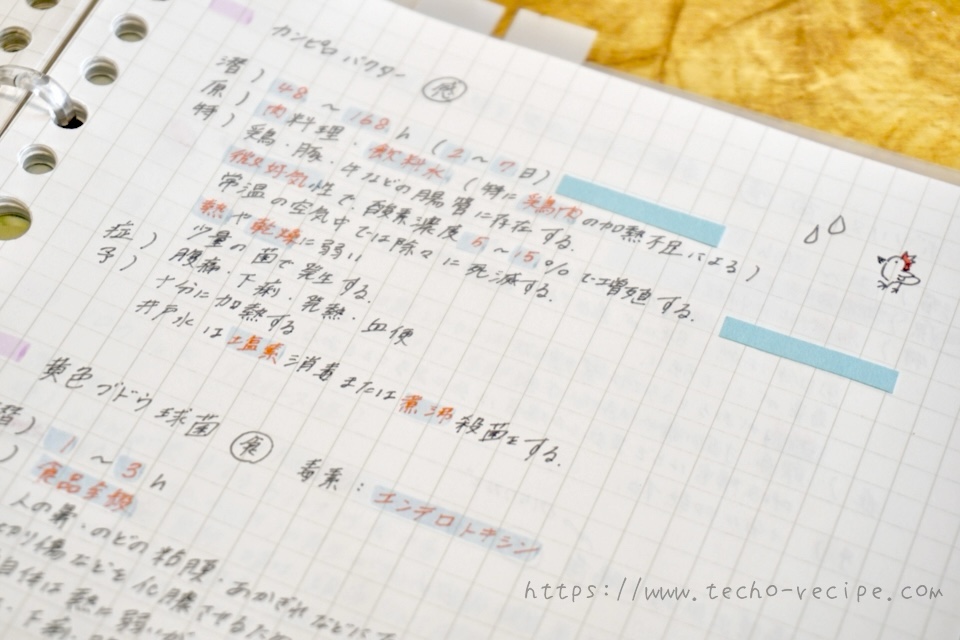 カンピロバクター
潜) 48 ~ 168 h (2~7日)
原) 肉料理・飲料水 (特に鶏肉の加熱不足による)
特) 鶏・豚・牛などの腸管に存在する。
微好気性で、酸素濃度 5~15% で増殖する。
常温の空気中では除々に死滅する。
熱や乾燥に弱い
少量の菌で発生する。
症) 腹痛・下痢・発熱・血便
予) 十分に加熱する
井戸水は塩素消毒または煮沸殺菌をする。
黄色ブドウ球菌 毒素:エンテロトキシン
潜) 1 ~ 3 h
) 食品全般
人の鼻・のどの粘膜・あかぎれなど
切り傷などを化膿させる
自体は熱に弱いが
・下痢・
https://www.techo-recipe.com